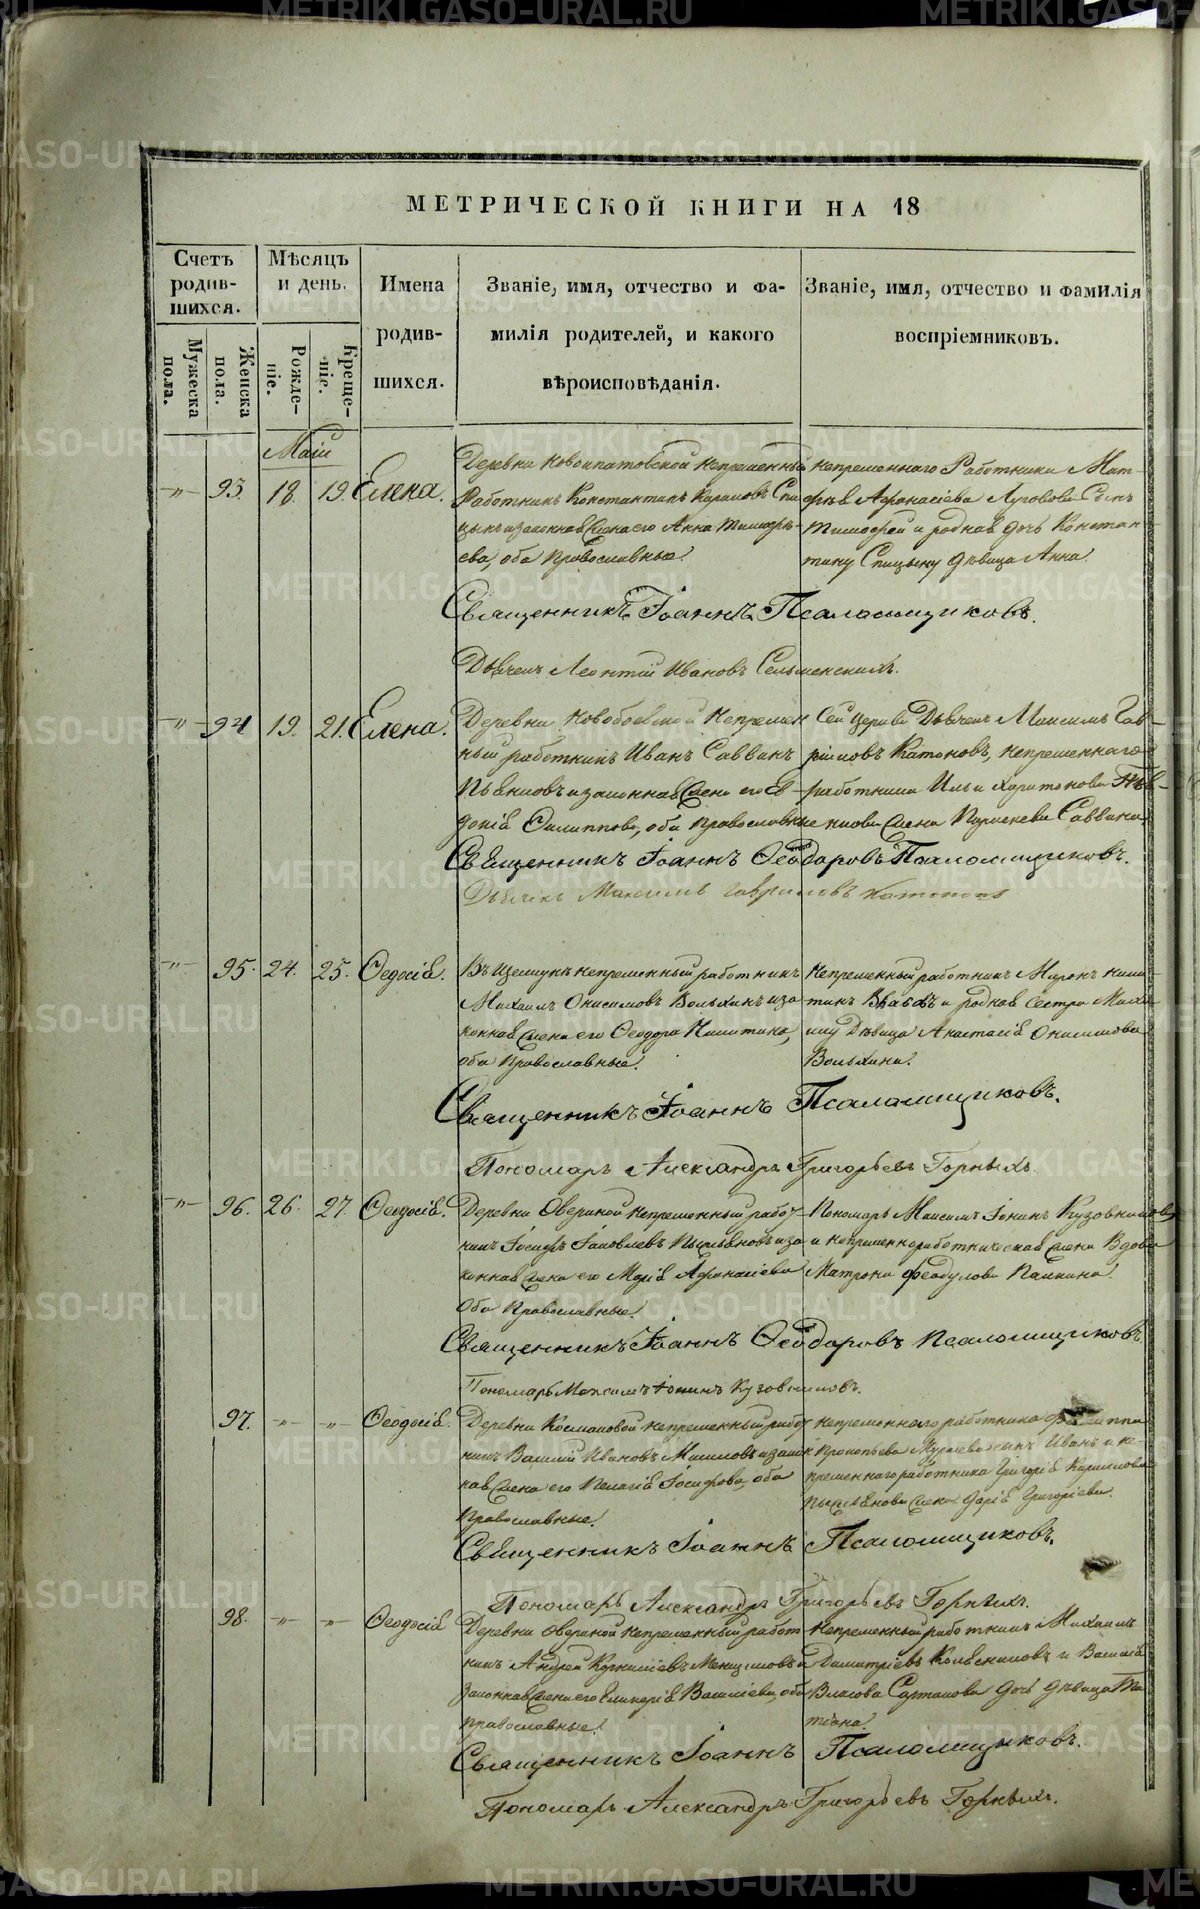 МЕТРИЧЕСКОЙ КНИГИ НА 18
Счетъ родив-шихся.
Мужеска пола.
Женска пола.
Мѣсяцъ и день.
Рожде-ніе.
Креще-ніе.
Имена родив-шихся.
Званіе, имя, отчество и фа-
милія родителей, и какого
вѣроисповѣданія.
Званіе, имя, отчество и фамилія
воспріемниковъ.
Маіи
93. 18. 19. Елена.
Деревни Новоипатовской Непременный
Работникъ Константинъ Спи
цынъ и законная жена его Анна Тимофѣ-
ева, оба Православные.
Непременнаго Работника Мат-
фѣя Афонасіева Луговова Сынъ
Тимофей и родная дочь Констан
тину Спицыну дѣвица Анна.
Священникъ Іоаннъ Псаломщиковъ.
Дьячекъ Леонтій Ивановъ
94 19. 21. Елена.
Деревни Непремен
ный работникъ Иванъ Саввинъ
Пьянковъ и законная жена его Ев-
докія Филиппова, оба Православные
Сей церкви Дьячекъ Максимъ Гав-
риловъ Катоновъ, непременнаго
работника Ильи Харитонова
жена Саввина.
Священникъ Іоаннъ Ѳеодоровъ Псаломщиковъ.
Дьячекъ Максимъ Гавриловъ Катоновъ
95. 24. 25. Ѳедосія.
непременный работникъ
Михаилъ Онисимовъ Вольхинъ и за
конная жена его Ѳеодора Никитина,
оба Православные.
Непременный работникъ Миронъ Ники
тинъ и родная сестра Миха
илу Дѣвица Анастасія Онисимова
Вольхина.
Священникъ Іоаннъ Псаломщиковъ.
Пономарь Александръ Григорьевъ Горныхъ.
96. 26. 27. Ѳеодосія.
Деревни Овериной непременный работ
никъ Іосифъ Іаковлевъ и за
конная жена его Марія Афонасіева
Оба Православные.
Пономарь Максимъ Іонинъ Кузовниковъ
и непременноработническая жена Вдова
Матрона Феодулова Панкина.
Священникъ Іоаннъ Ѳеодоровъ Псаломщиковъ.
Пономарь Максимъ Іонинъ Кузовниковъ.
97. Ѳеодосія.
Деревни Космаковой непременный работ
никъ Василій Ивановъ и закон
ная жена его Пелагія Іосифова, оба
Православные.
непременнаго работника
Прокопьева сынъ Иванъ и не-
пременнаго работника Григорія Кириллова
жена Дарія Григоріева.
Священникъ Іоаннъ Псаломщиковъ.
Пономарь Александръ Григорьевъ Горныхъ.
98. Ѳеодосія
Деревни Овериной непременный работ
никъ Андрей Корниліевъ Менщиковъ и
законная жена его Васильева, оба
православные.
Непременный работникъ Михаилъ
Димитріевъ Колесниковъ и Василія
Власова дочь дѣвица Та
тіана.
Священникъ Іоаннъ Псаломщиковъ.
Пономарь Александръ Григорьевъ Горныхъ.